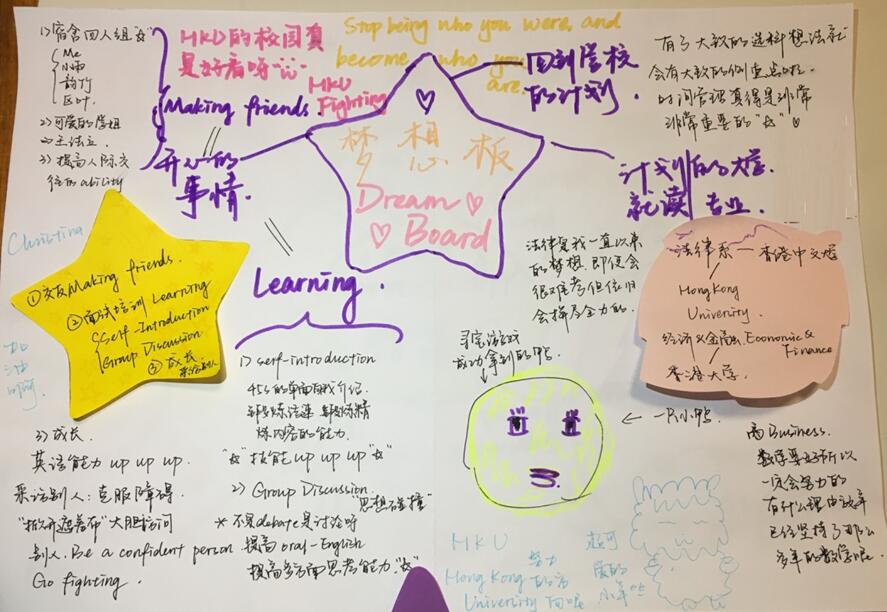 1) 宿舍四人组
Me
小雨
韵竹
区叶
2) 可爱的学姐
3) 提高人际交
往的ability
HKU的校园真
是好看呀
HKU
Fighting
Stop being who you were, and
become who you
are
Making friends.
开心的
事情.
回到学校
的计划.
有了大致的选科想法就
会有大致的侧重点啦.
时间管理真得是非常
非常重要的
梦想板
Dream
Board
计划的大学
就读专业.
Christina
①交友Making friends.
②面试培训 Learning
Self-Introduction
Group Discussion
③成长
Learning.
1) self-introduction
45s的单面自我介绍.
炼内容的能力.
技能 up up up
2) Group Discussion
"思想碰撞"
*不是debate是讨论呀
提高oral-English
提高多方面思考能力.
3) 成长.
英语能力 up up up.
采访别人: 克服障碍.
大胆访问
别人. Be a confident person
Go fighting.
法律是我一直以来
的梦想. 即便会
很难考但依旧
会拼尽全力的.
寻宝游戏
成功拿到的鸭.
一只小鸭.
法律系—香港中文大学
HongKong
Univerity.
经济&金融. Economic &
Finance
香港大学.
商Business.
数学要好所以
一定会努力的
有什么理由放弃
已经坚持了那么
多年的数学呢
HKU
努力
Hong Kong 的方
University 向呢
超可
爱的